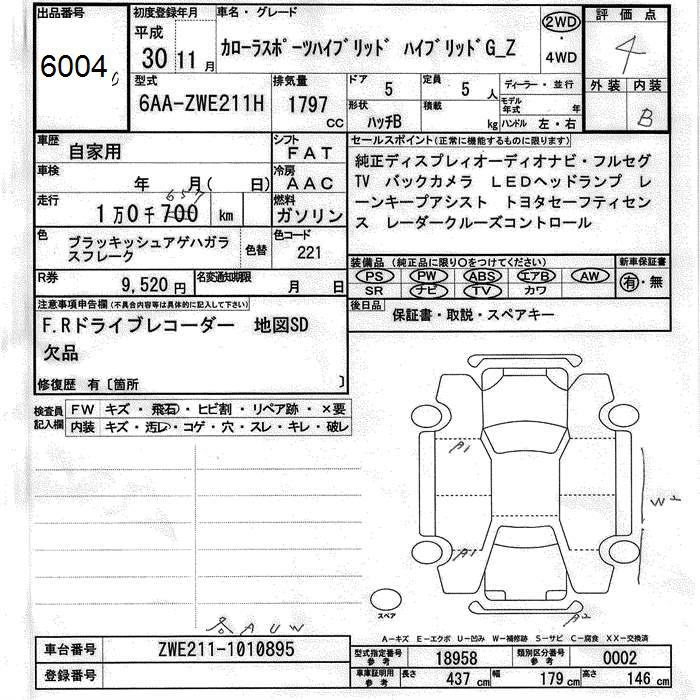 出品番号
6004
初度登録年月
平成
30 11月
車名・グレード
カローラスポーツハイブリッド ハイブリッドG_Z
2WD
・
4WD
評価点
4
外装 内装
B
型式
6AA-ZWE211H
排気量
1797
CC
ドア
5
定員
5人
ディーラー・並行
形状
ハッチB
積載
kg
モデル年式 年
ハンドル 左・右
車歴
自家用
シフト
FAT
車検
年 月( 日)
冷房
AAC
走行
1万0千700
657
km
燃料
ガソリン
色
ブラッキッシュアゲハガラ
スフレーク
色替
色コード
221
R券
9,520円
名変通知期限
月 日
セールスポイント(正常に機能するものに限ります)
純正ディスプレィオーディオナビ・フルセグ
TV バックカメラ LEDヘッドランプ レ
ーンキープアシスト トヨタセーフティセン
ス レーダークルーズコントロール
装備品(純正品に限り○をつけてください)
PS PW ABS エアB AW
SR ナビ TV カワ
新車保証書
有・無
後日品
保証書・取説・スペアキー
注意事項申告欄(不具合内容等は具体的に記入して下さい)
F.Rドライブレコーダー 地図SD
欠品
修復歴 有〔箇所 〕
検査員
記入欄
FW キズ・飛石・ヒビ割・リペア跡・×要
内装 キズ・汚レ・コゲ・穴・スレ・キレ・破レ
A1
A1
W2
A2
スペア
AUW
A-キズ E-エクボ U-凹み W-補修跡 S-サビ C-腐食 XX-交換済
車台番号
ZWE211-1010895
登録番号
型式指定番号
参考
18958
類別区分番号
参考
0002
車庫証明用
参考
長さ
437cm
幅
179cm
高さ
146cm